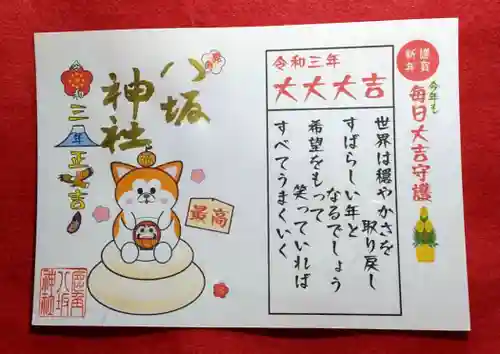 謹賀
新年
今年も
毎日大吉守護
令和三年
大大大吉
世界は穏やかさを
取り戻し
すばらしい年と
なるでしょう
希望をもって
笑っていれば
すべてうまくいく
八坂
神社
最高
令和
三年正吉
八坂
神社